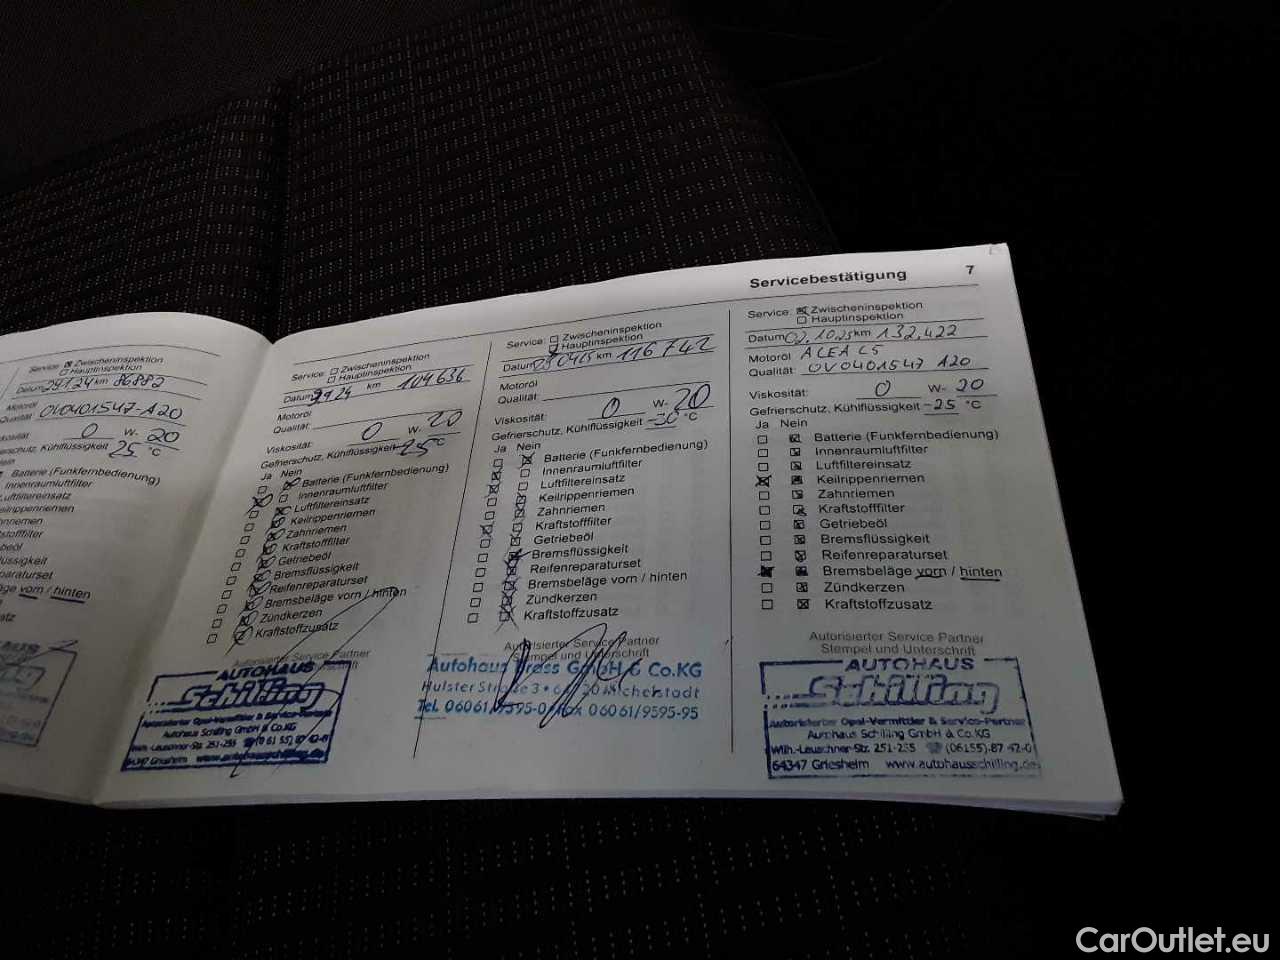 Servicebestätigung 7
Service: Zwischeninspektion
Hauptinspektion
Datum 29.1.24 km 86882
Motoröl
Qualität 0V0401547-A20
0 W- 20
Kühlflüssigkeit 25 °C
Batterie (Funkfernbedienung)
Innenraumluftfilter
vorn / hinten
Service: Zwischeninspektion
Hauptinspektion
Datum km 104636
Motoröl
Qualität:
Viskosität: 0 W- 20
Gefrierschutz, Kühlflüssigkeit -25 °C
Ja Nein
Batterie (Funkfernbedienung)
Innenraumluftfilter
Luftfiltereinsatz
Keilrippenriemen
Zahnriemen
Kraftstofffilter
Getriebeöl
Bremsflüssigkeit
Reifenreparaturset
Bremsbeläge vorn / hinten
Zündkerzen
Kraftstoffzusatz
Autorisierter Service Partner
AUTOHAUS
Schilling
Autorisierter Opel-Vermittler & Service-Partner
Autohaus Schilling GmbH & Co.KG
Wilh.-Leuschner-Str. 251-255 ☎ (06155) 87 42-0
64347 Griesheim www.autohausschilling.de
Service: Zwischeninspektion
Hauptinspektion
Datum km 116742
Motoröl
Qualität:
Viskosität: 0 W- 20
Gefrierschutz, Kühlflüssigkeit -30 °C
Ja Nein
Batterie (Funkfernbedienung)
Innenraumluftfilter
Luftfiltereinsatz
Keilrippenriemen
Zahnriemen
Kraftstofffilter
Getriebeöl
Bremsflüssigkeit
Reifenreparaturset
Bremsbeläge vorn / hinten
Zündkerzen
Kraftstoffzusatz
Autorisierter Service Partner
Stempel und Unterschrift
Autohaus GmbH & Co.KG
Tel. 06061/9595-0 Fax 06061/9595-95
Service: Zwischeninspektion
Hauptinspektion
Datum 02.10.25 km 132,422
Motoröl ACEA C5
Qualität: 0V0401547 A20
Viskosität: 0 W- 20
Gefrierschutz, Kühlflüssigkeit -25 °C
Ja Nein
Batterie (Funkfernbedienung)
Innenraumluftfilter
Luftfiltereinsatz
Keilrippenriemen
Zahnriemen
Kraftstofffilter
Getriebeöl
Bremsflüssigkeit
Reifenreparaturset
Bremsbeläge vorn / hinten
Zündkerzen
Kraftstoffzusatz
Autorisierter Service Partner
Stempel und Unterschrift
AUTOHAUS
Schilling
Autorisierter Opel-Vermittler & Service-Partner
Autohaus Schilling GmbH & Co.KG
Wilh.-Leuschner-Str. 251-255 ☎ (06155) 87 42-0
64347 Griesheim www.autohausschilling.de
CarOutlet.eu